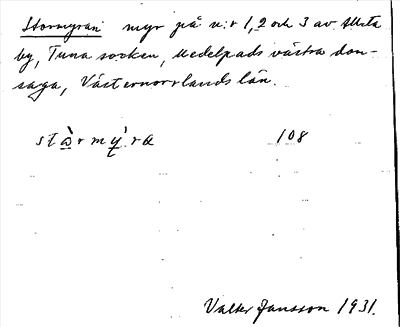 Stormyran myr på n:r 1, 2 och 3 av Allsta
by, Tuna socken, Medelpads västra dom-
saga, Västernorrlands län.
stɷ̀rmý̨ra 108
Valter Jansson 1931.